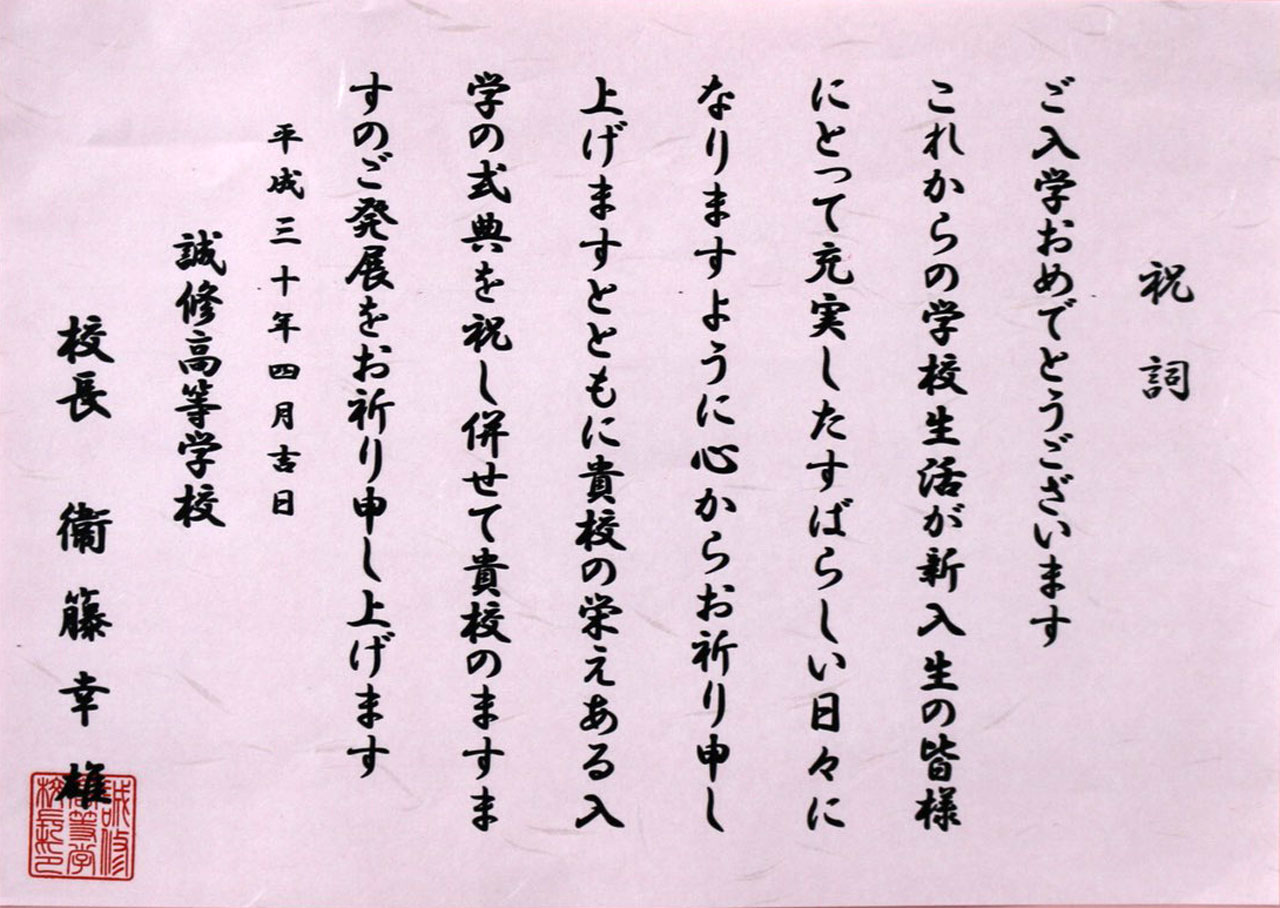 祝詞
ご入学おめでとうございます
これからの学校生活が新入生の皆様
にとって充実したすばらしい日々に
なりますように心からお祈り申し
上げますとともに貴校の栄えある入
学の式典を祝し併せて貴校のますま
すのご発展をお祈り申し上げます
平成三十年四月吉日
誠修高等学校
校長 衞藤幸雄
誠修高等学校長之印